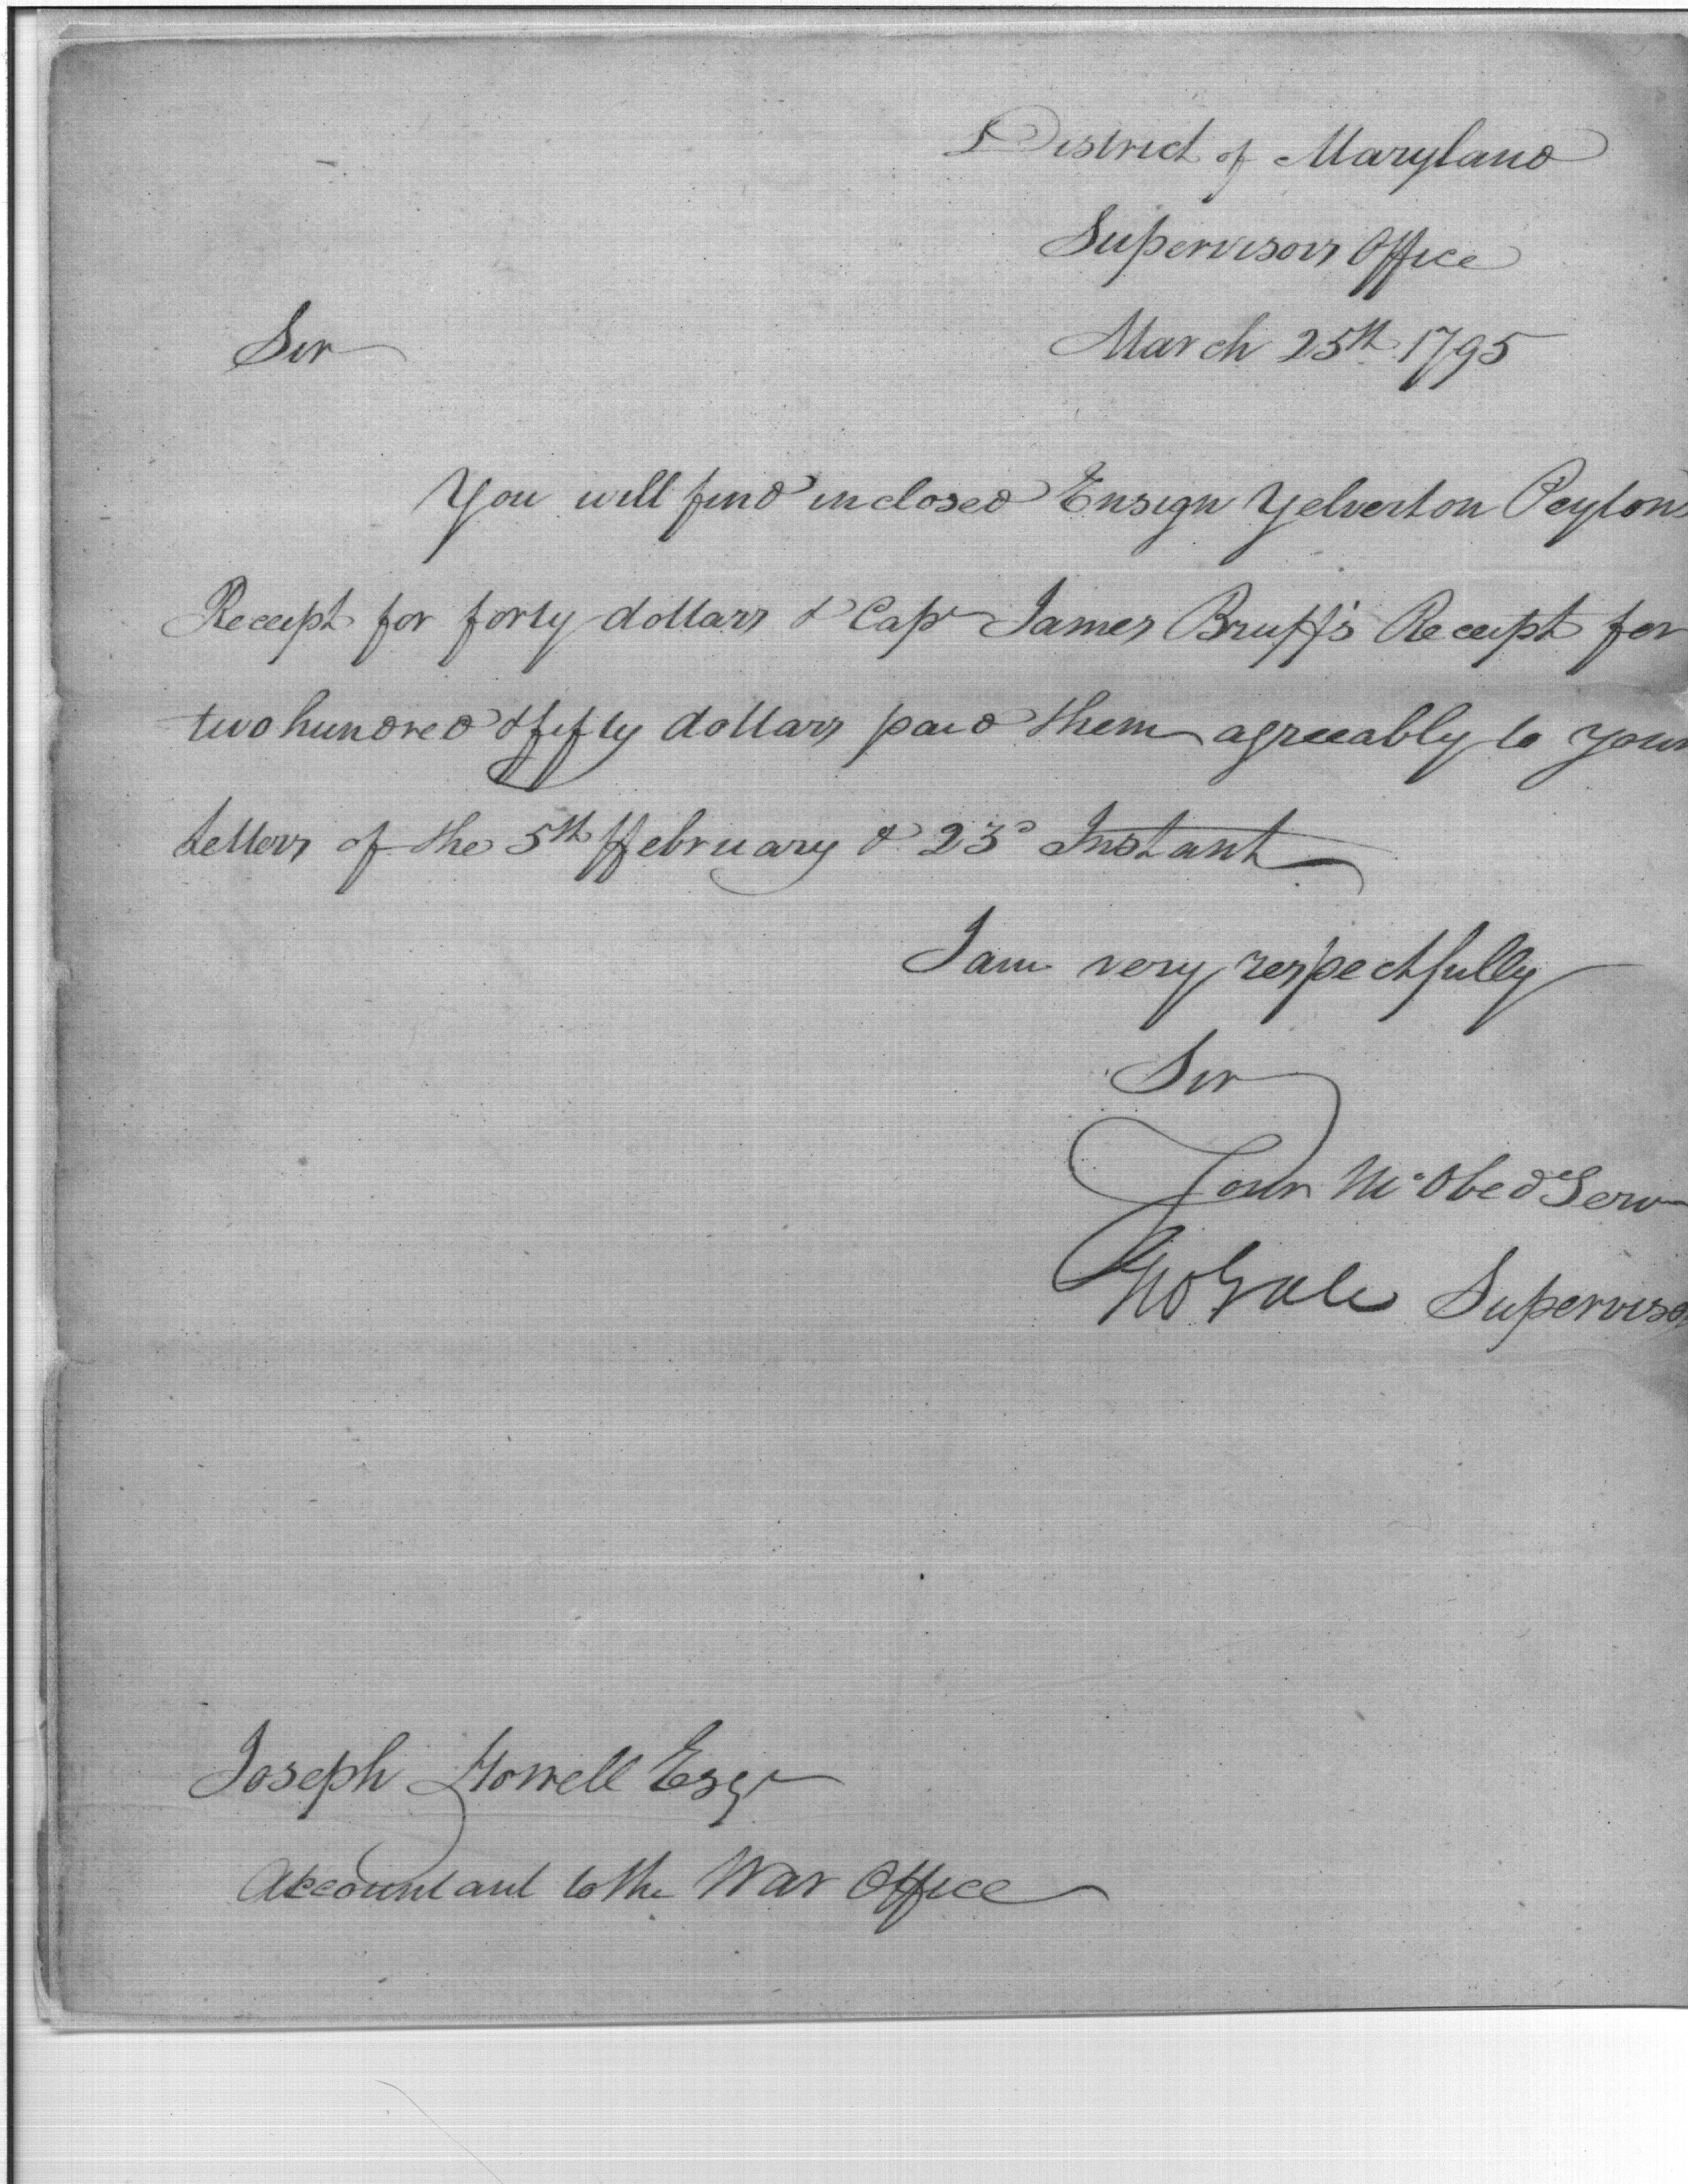 District of Maryland
Supervisors Office
March 25th 1795
Sir
You will find inclosed Ensign Yelverton Peytons
Receipt for forty dollars & Capt James Bruff's Receipt for
two hundred & fifty dollars paid them agreeably to your
Letters of the 5th ffebruary & 23d Instant
I am very respectfully
Sir
Your Mo Obed Serv
Geo Gale Supervisor
Joseph Howell Esqr
Accountant to the War Office